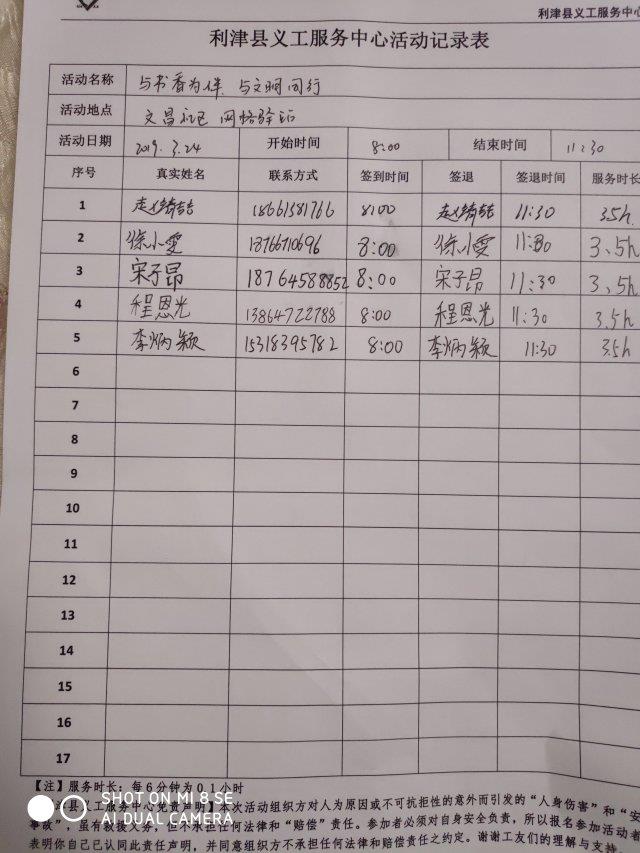 利津县义工服务中心
利津县义工服务中心活动记录表
活动名称 与书香为伴、与文明同行
活动地点 文昌 网格驿站
活动日期 2019.3.24 开始时间 8:00 结束时间 11:30
序号 真实姓名 联系方式 签到时间 签退 签退时间 服务时长
1 18661581766 8:00 11:30 3.5h
2 徐小雯 18766710696 8:00 徐小雯 11:30 3.5h
3 宋子昂 18764588852 8:00 宋子昂 11:30 3.5h
4 程恩光 13864722788 8:00 程恩光 11:30 3.5h
5 李炳颖 15318395782 8:00 李炳颖 11:30 3.5h
6
7
8
9
10
11
12
13
14
15
16
17
【注】服务时长：每6分钟为0.1小时
县义工服务中心免责声明】本次活动组织方对人为原因或不可抗拒性的意外而引发的“人身伤害”和“安
事故”，虽有救援义务，但不承担任何法律和“赔偿”责任。参加者必须对自身安全负责，所以报名参加活动者
表明你自己已认同此责任声明，并同意组织方不承担任何法律和赔偿责任之约定。谢谢工友们的理解与支持。
SHOT ON MI 8 SE
AI DUAL CAMERA